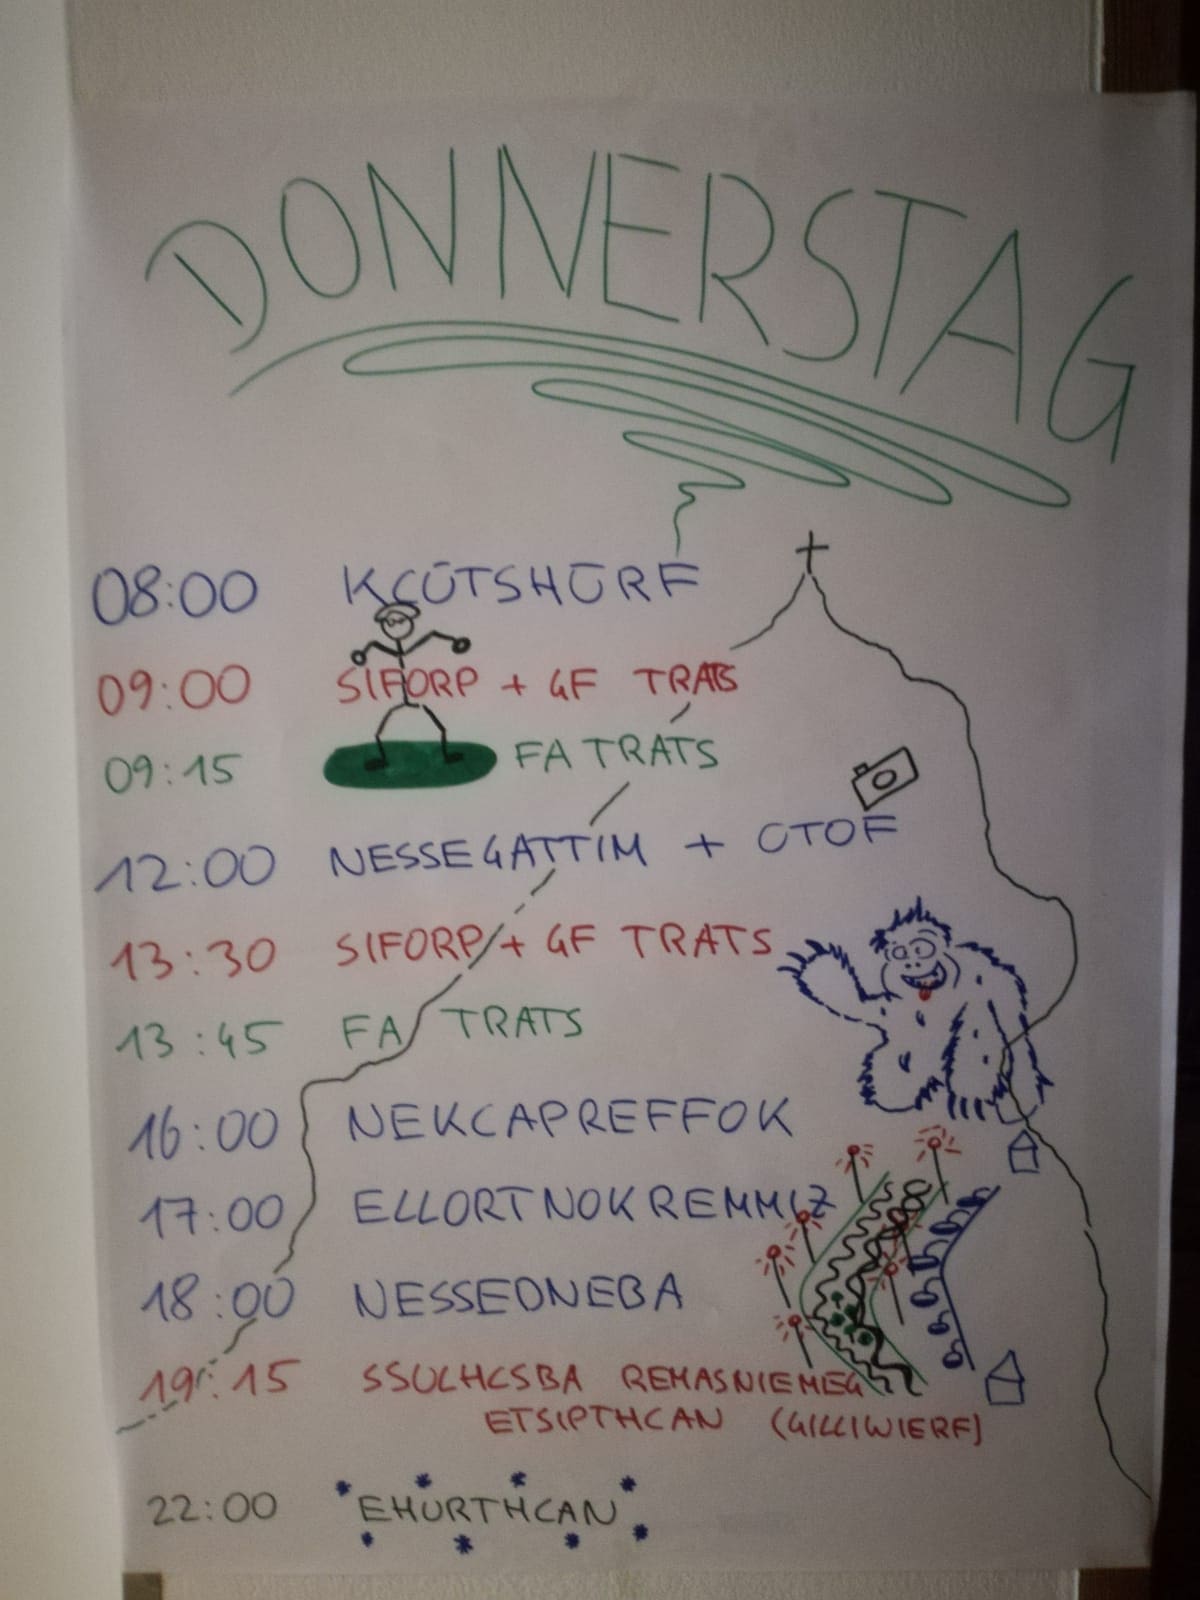 DONNERSTAG
08:00 KCÜTSHÜRF
09:00 SIFORP + GF TRATS
09:15 FA TRATS
12:00 NESSEGATTIM + OTOF
13:30 SIFORP + GF TRATS
13:45 FA TRATS
16:00 NEKCAPREFFOK
17:00 ELLORTNOKREMMIZ
18:00 NESSEDNEBA
19:15 SSULHCSBA REMASNIEMEG
ETSIPTHCAN (GILLIWIERF)
22:00 EHURTHCAN